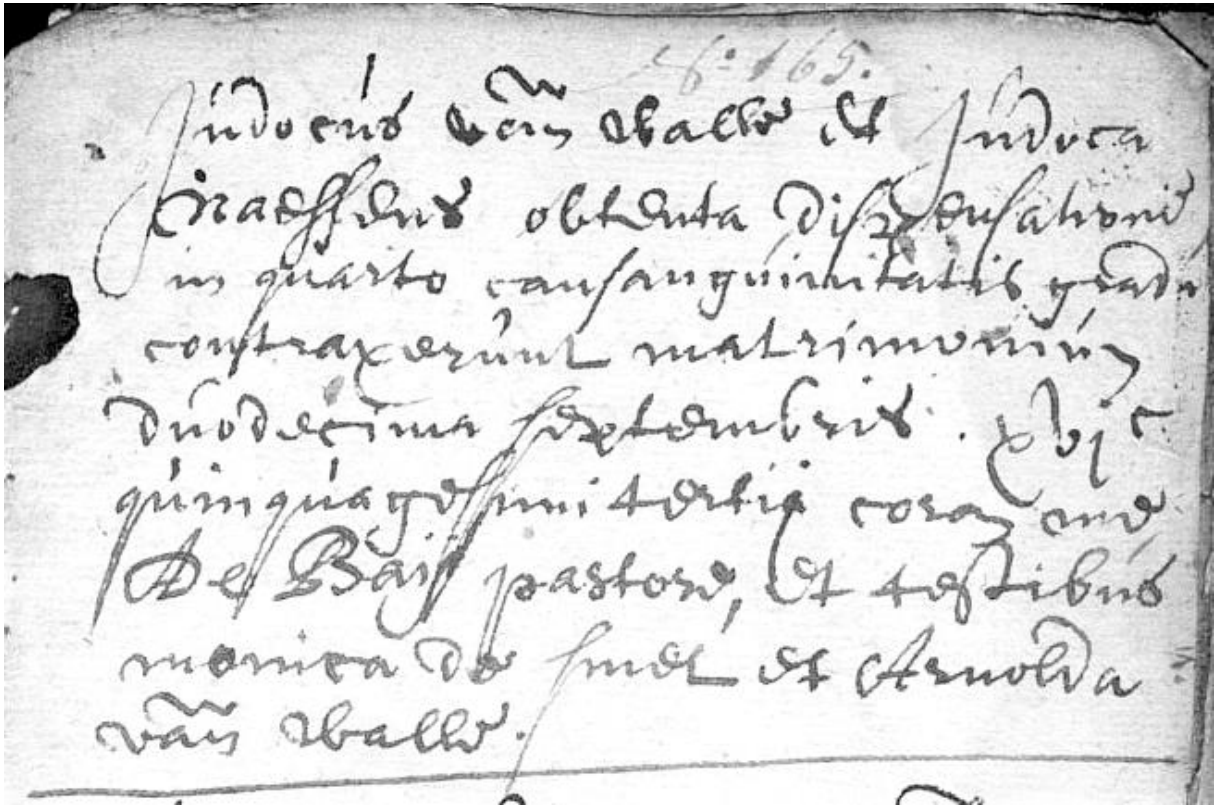 Judocus van Walle et Judoca
Naessens obtenta dispensatione
in quarto cansanguinitatis gradu
contraxerunt matrimonium
duodecima septembris . xvjc
quinquagesimi tertia coram me
De Baij pastore, et testibus
monica de smet et Arnolda
van Walle .